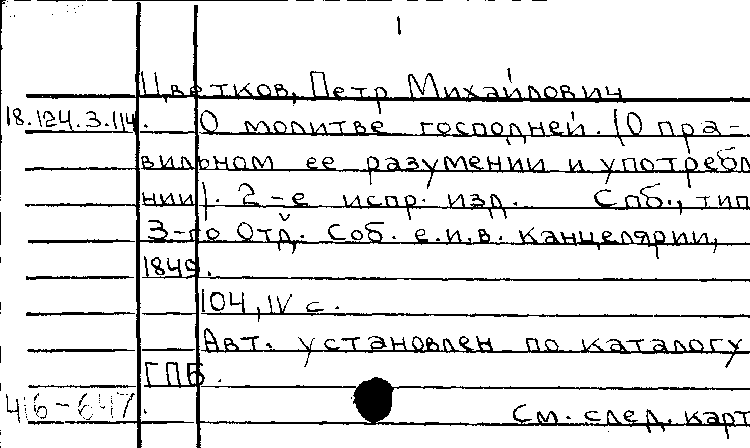 1
Цветков, Петр Михайлович
18.124.3.114. О молитве господней. (О пра-
вильном ее разумении и употребл
нии). 2-е испр. изд. Спб., тип
3-го Отд. Соб. е.и.в. канцелярии,
1849.
104, IV с.
Авт. установлен по каталогу
ГПБ.
416-647.
См. след. карт